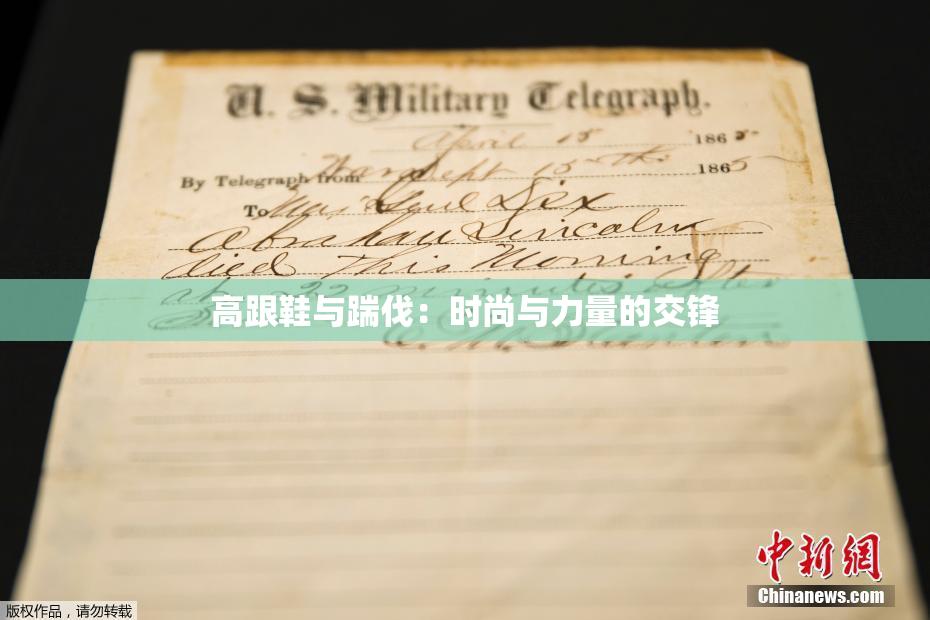 U. S. Military Telegraph.
April 15 1865
By Telegraph from War Dept 15th 1865
To Maj Genl Dix
Abraham Lincoln
died This Morning
at 22 minutes after
高跟鞋与踹伐：时尚与力量的交锋
E. M. Stanton
中新网
Chinanews.com
版权作品，请勿转载